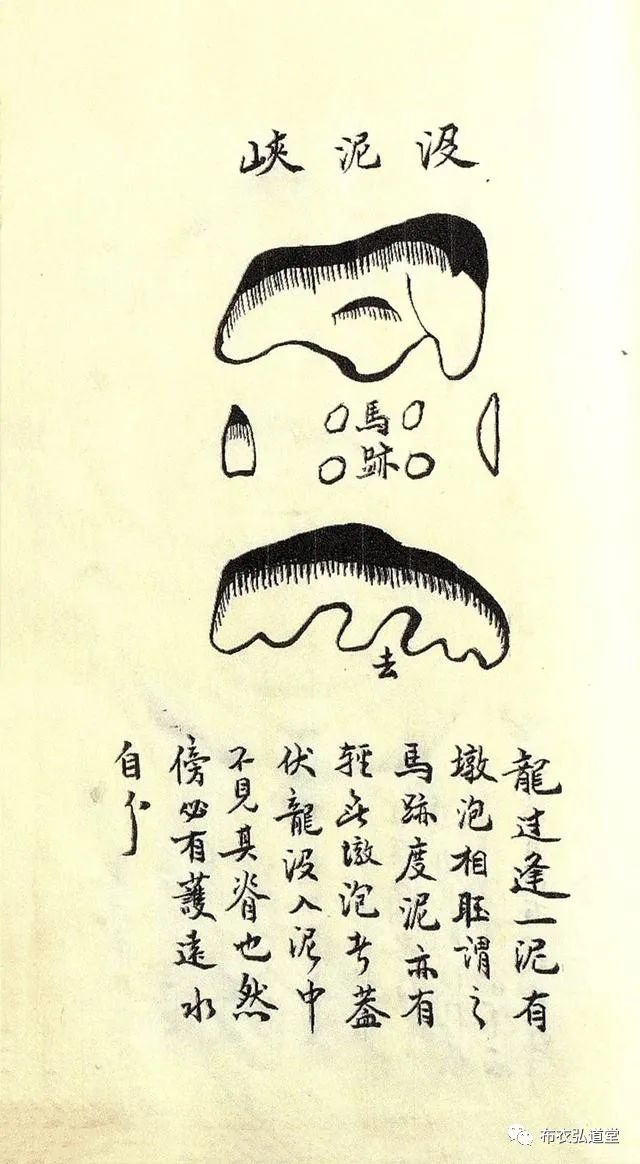 没泥峽
馬
跡
去
龍过逢一泥有
墩泡相聯謂之
馬跡度泥亦有
輕無墩泡者蓋
伏龍没入泥中
不見其脊也然
傍必有護遠水
自分
布衣弘道堂